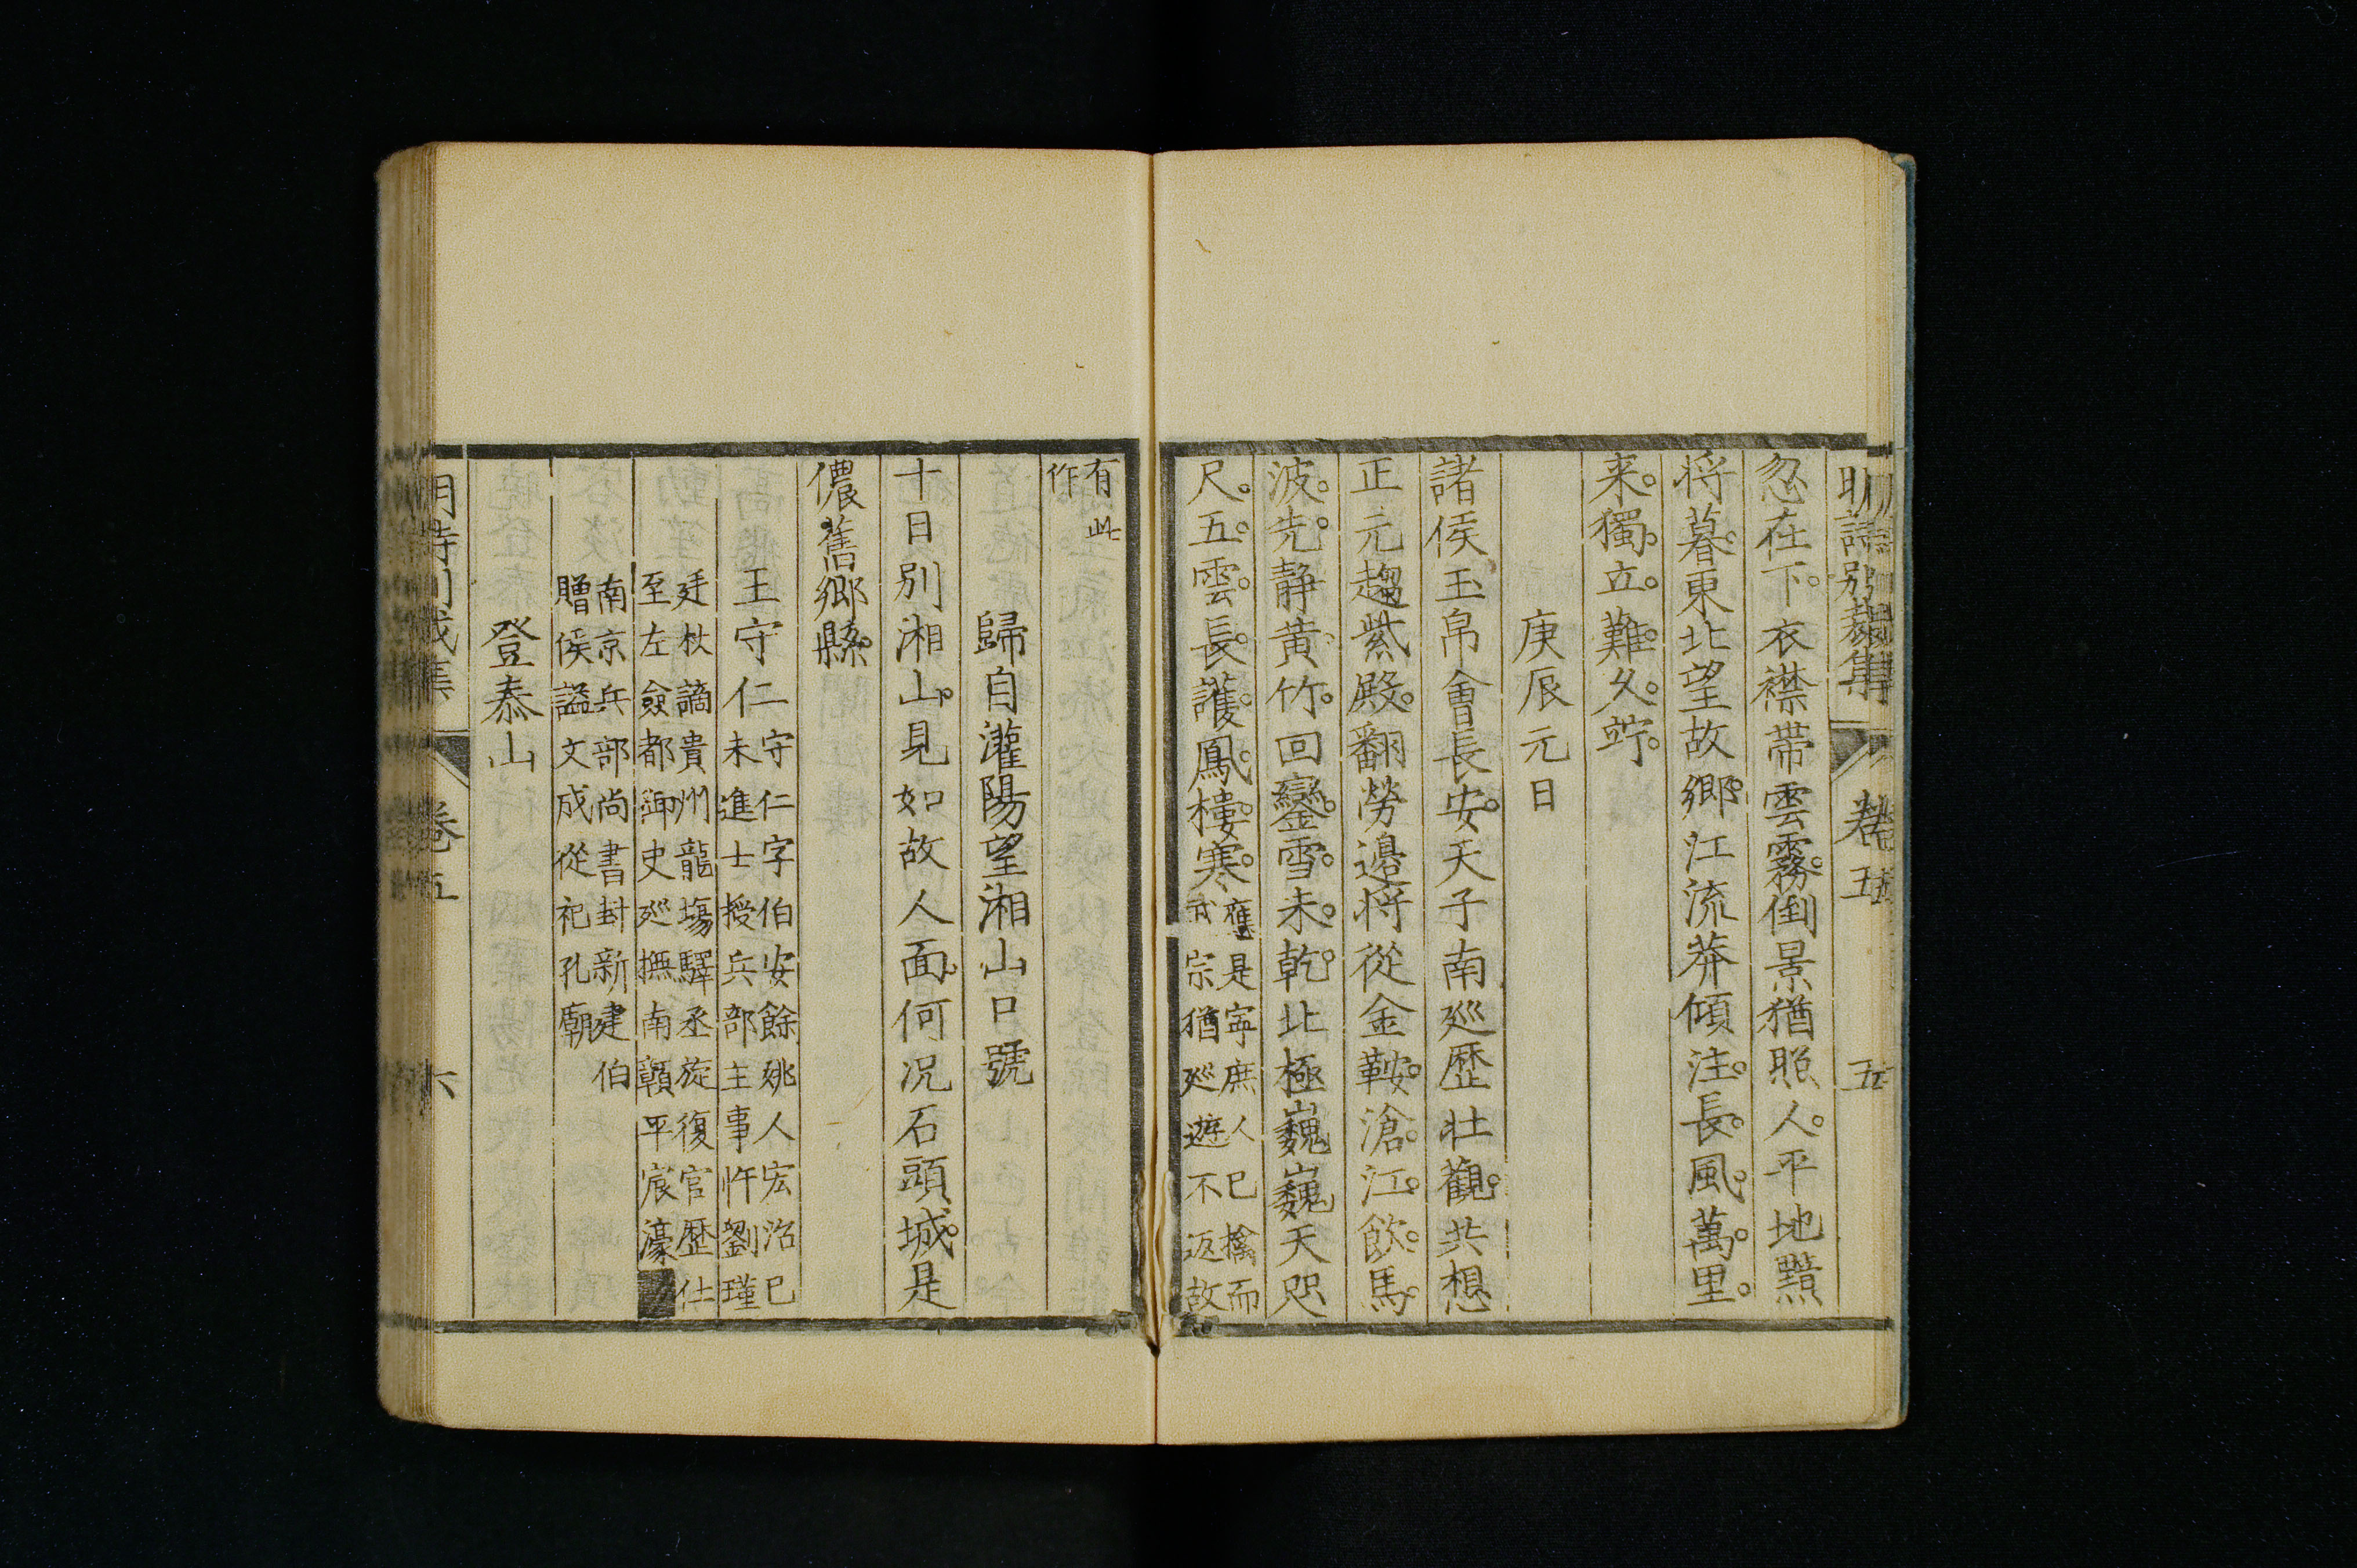 明詩別裁集 卷五 五
忽在下。衣襟帶雲霧。倒景猶照人。平地黯
将暮。東北望故鄉。江流莽傾注。長。風。萬。里。
来。獨。立。難。久。竚。
庚辰元日
諸侯玉帛會長安。天子南廵歷壯觀。共想
正元趨紫殿。翻勞邉将從金鞍。滄。江。飲。馬。
波。先。静黄竹。回鑾。雪。未。乾。北極巍巍天咫
尺。五。雲。長。護。鳳。樓。寒。
應是寧庶人已擒而
武宗猶廵遊不返故
有此
作
歸自灌陽望湘山口號
十日別湘山。見如故人面。何况石頭城。是
儂舊鄉縣。
王守仁
守仁字伯安餘姚人宏治己
未進士授兵部主事忤劉瑾
廷杖謫貴州龍塲驛丞旋復官歷仕
至左僉都御史廵撫南贛平宸濠
南京兵部尚書封新建伯
贈侯謚文成從祀孔廟
登泰山
明詩別裁集 卷五 六